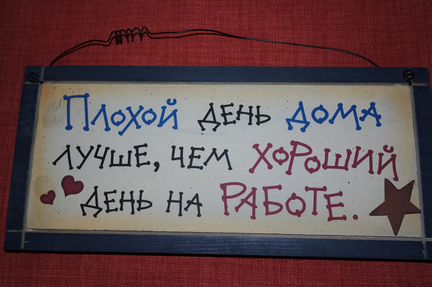 Плохой день дома
лучше, чем хороший
день на РАБОТЕ.